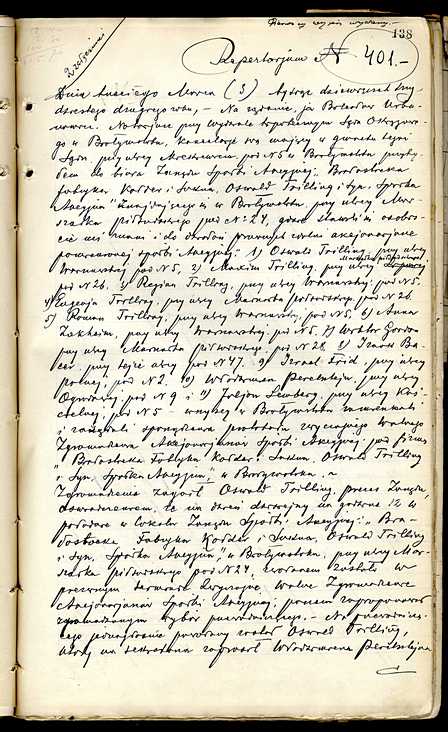 138
Repertorjum № 401.-
Dnia trzeciego Marca (3) tysiąc dziewięćset trzy-
dziestego drugiego roku, - Na żądanie, ja Bolesław Urba-
nowicz, Notarjusz przy Wydziale Hipotecznym Sądu Okręgowe-
go w Białymstoku, kancelarję swą mający w gmachu tegoż
Sądu, przy ulicy Mickiewicza, pod № 5 w Białymstoku przyby-
łem do biura Zarządu Spółki Akcyjnej: Białostocka
Fabryka Kołder i Sukna, Oswald Trilling i Syn, Spółka
Akcyjna" znajdującego się w Białymstoku, przy ulicy Mar-
szałka Piłsudskiego pod № 24, gdzie stawili się osobi-
ście akcjonarjusze
powołanej Spółki Akcyjnej: 1) Oswald Trilling, przy ulicy
Warszawskiej pod № 5, 2) Maksim Trilling, przy ulicy
pod № 26, 3) Regina Trilling, przy ulicy Warszawskiej pod № 5,
4) Eugenja Trilling, przy ulicy Marszałka Piłsudskiego, pod № 26
5) Roman Trilling, przy ulicy Warszawskiej, pod № 5, 6) Anna
Zakheim, przy ulicy Warszawskiej pod № 5, 7) Wiktor Gordon
przy ulicy Marszałka Piłsudskiego, pod № 28, 8) Izaak
przy tejże ulicy pod № 47, 9) Izrael Frid, przy ulicy
Polnej, pod № 2, Włodzimierz Perelsztejn, przy ulicy
Ogrodowej, pod № 9 i przy ulicy Koś-
cielnej, pod № 5 - wszyscy w Białymstoku zamieszkali
i zażądali sporządzenia protokółu zwyczajnego Walnego
Zgromadzenia Akcjonarjuszów Spółki Akcyjnej pod firmą
„Białostocka Fabryka Kołder i Sukna Oswald Trilling
i Syn, Spółka Akcyjna", w Białymstoku. -
Zgromadzenie zagaił Oswald Trilling, prezes Zarządu,
oświadczeniem, że na dzień dzisiejszy na godzinę 12 w
południe w lokalu Zarządu Spółki Akcyjnej: „Bia-
łostocka Fabryka Kołder i Sukna, Oswald Trilling
i Syn, Spółka Akcyjna", w Białymstoku, przy ulicy Mar-
szałka Piłsudskiego pod № 24, zwołanem zostało w
pierwszym terminie zwyczajne Walne Zgromadzenie
Akcjonarjuszów Spółki Akcyjnej, poczem zaproponował
zgromadzonym wybór przewodniczącego. - Na przewodniczą-
cego jednogłośnie powołany został Oswald Trilling,
który na sekretarza zaprosił Włodzimierza Perelsztejna